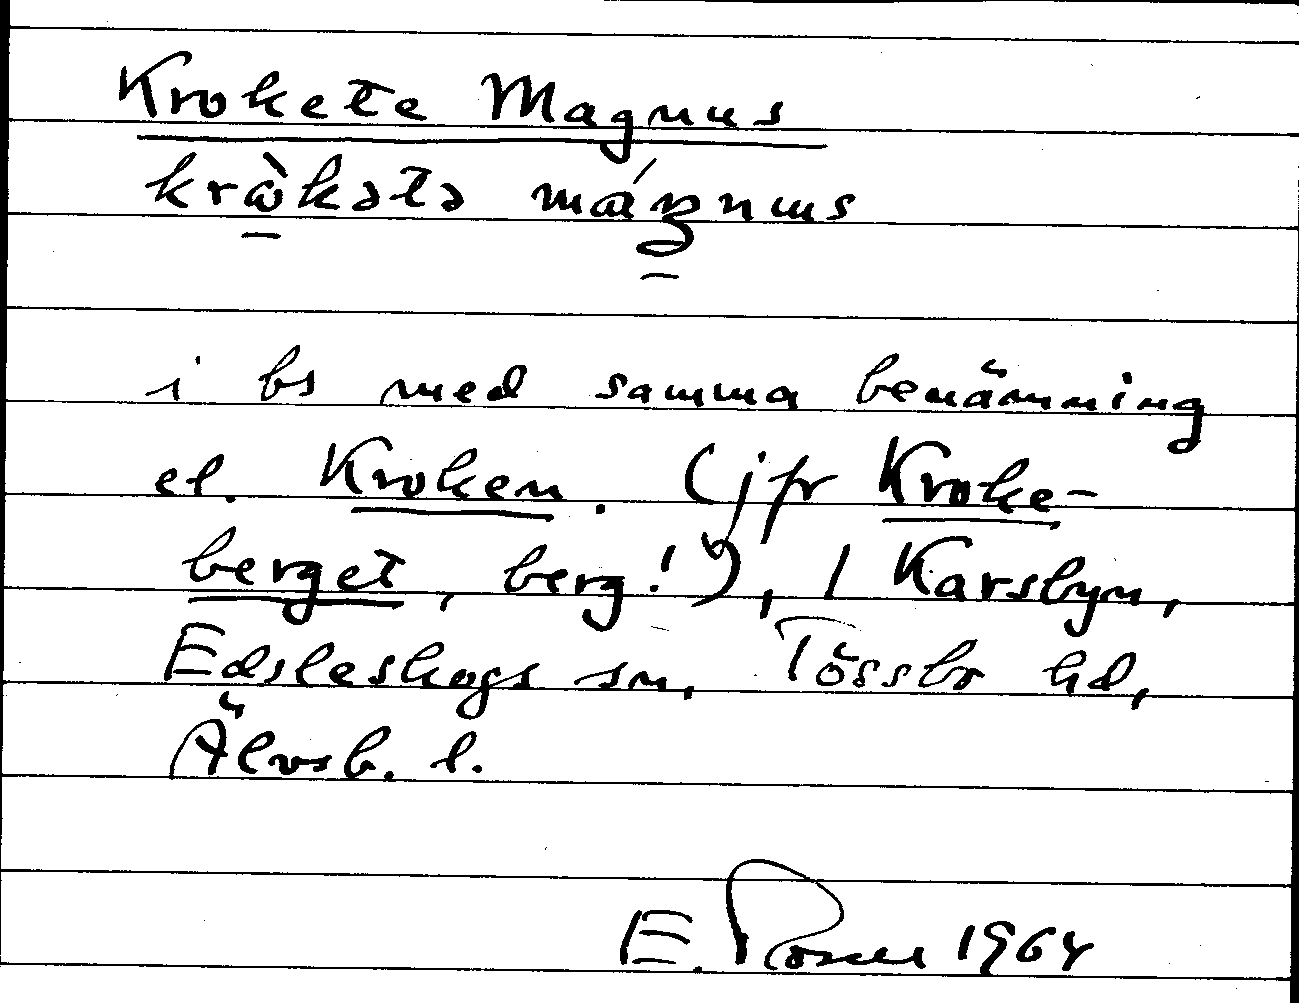 Krokete Magnus
krὼkətə máŋnɯs
i bs med samma benämning
el. Kroken. (jfr Kroke-
berget, berg!), / Karsbyn,
Edsleskogs sn, Tössbo hd,
Älvsb. l.
E. Rosell 1964